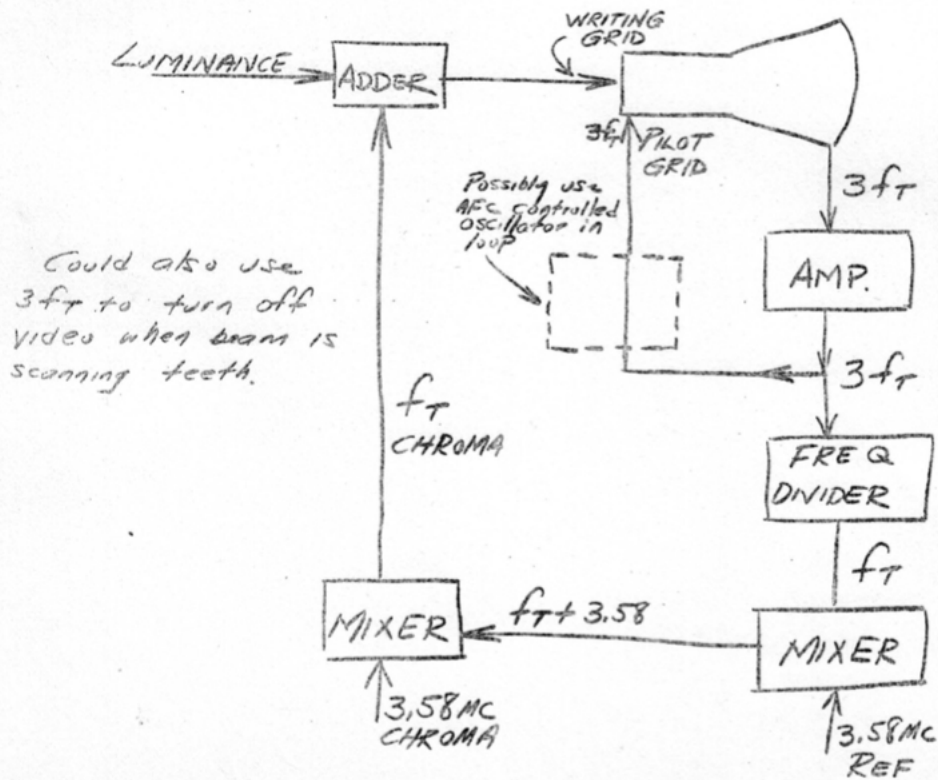 WRITING
GRID
LUMINANCE
ADDER
3fT PILOT
GRID
3fT
Possibly use
AFC controlled
oscillator in
loop
AMP.
Could also use
3fT to turn off
video when beam is
scanning teeth.
3fT
fT
CHROMA
FREQ
DIVIDER
fT
MIXER
fT + 3.58
MIXER
3.58MC
CHROMA
3.58MC
REF